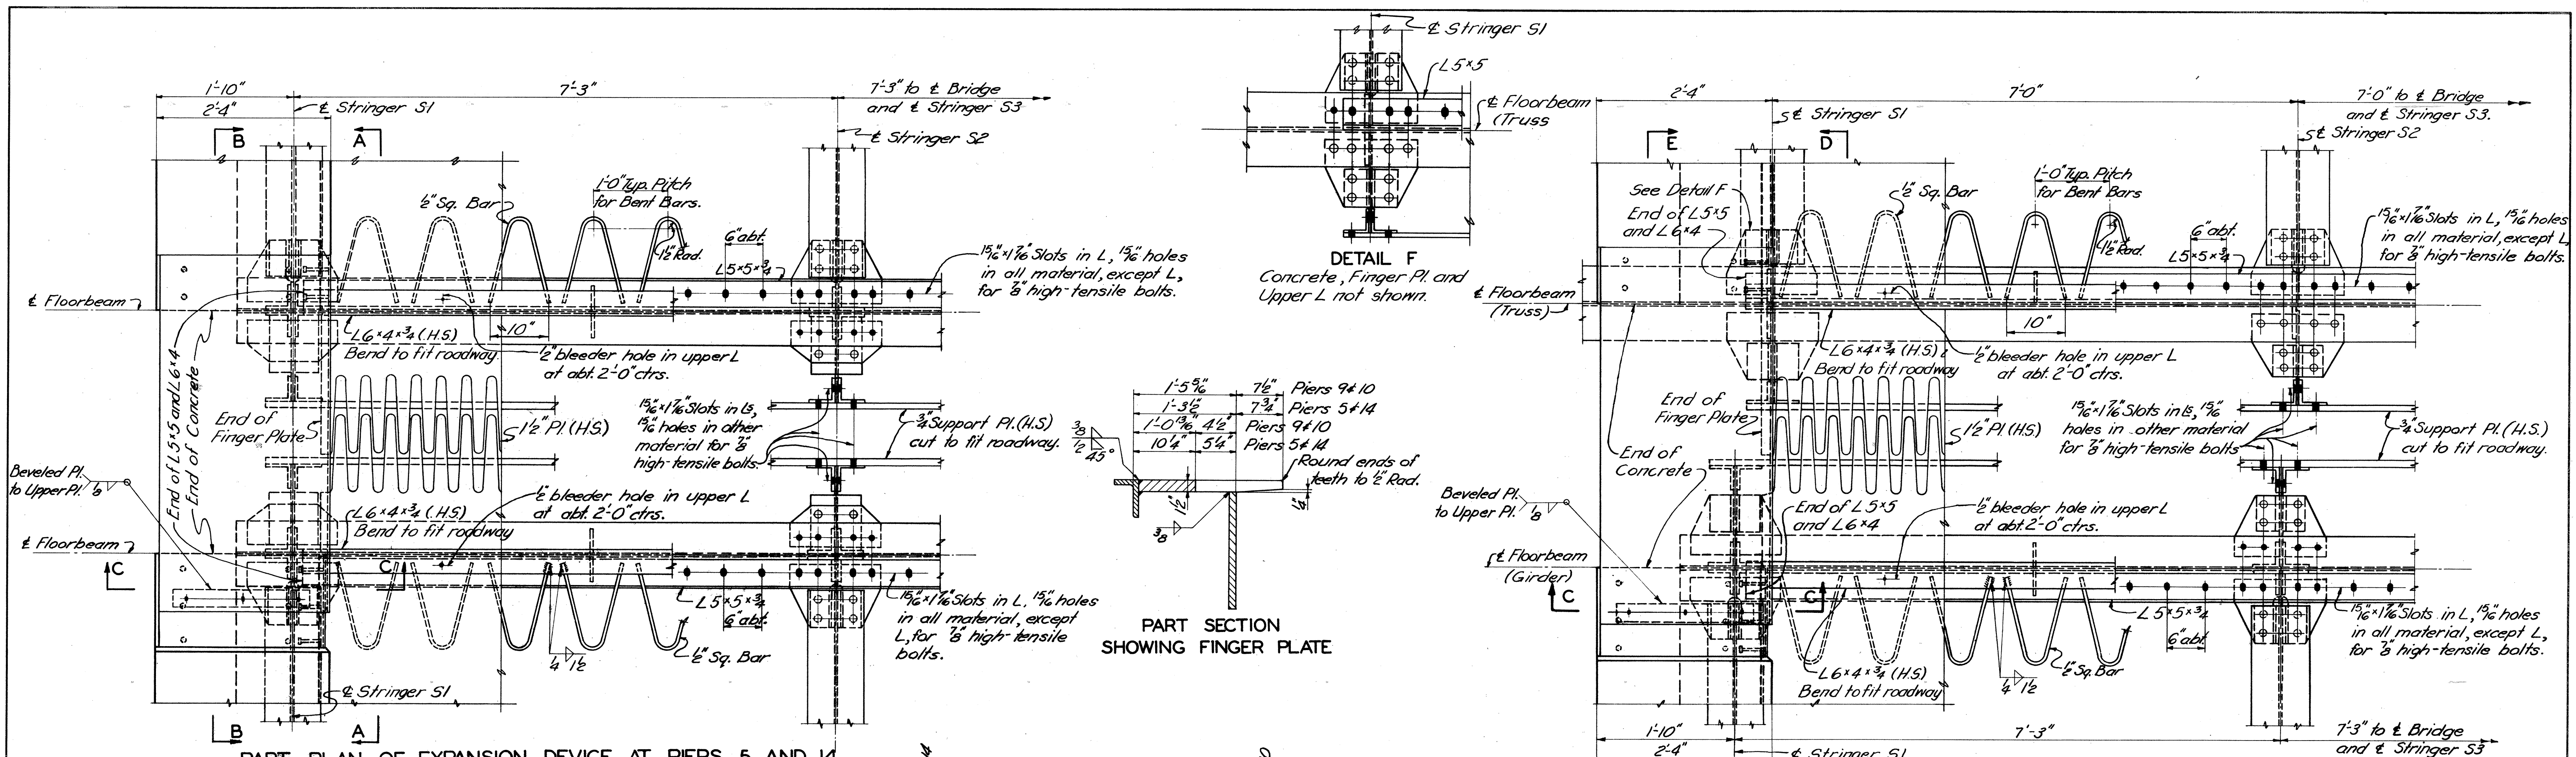 1'-10"
2'-4"
7'-3"
7'-3" to ℄ Bridge
and ℄ Stringer S3
℄ Stringer S1
℄ Stringer S2
B
A
1'-0" Typ. Pitch
for Bent Bars.
½" Sq. Bar
1½" Rad.
6" abt.
L5×5×¾
15/16"×1 7/16" Slots in L, 15/16" holes
in all material, except L,
for ⅞" high-tensile bolts.
℄ Floorbeam
L6×4×¾ (H.S.)
Bend to fit roadway.
10"
½" bleeder hole in upper L
at abt. 2'-0" ctrs.
End of L5×5 and L6×4
End of Concrete
End of
Finger Plate
1½" Pl. (H.S.)
15/16"×1 7/16" Slots in Ls,
15/16" holes in other
material for ⅞"
high-tensile bolts.
¾" Support Pl. (H.S.)
cut to fit roadway.
Beveled Pl.
to Upper Pl.
⅛
½" bleeder hole in upper L
at abt. 2'-0" ctrs.
L6×4×¾ (H.S.)
Bend to fit roadway
℄ Floorbeam
C
C
L5×5×¾
6" abt.
15/16"×1 7/16" Slots in L, 15/16" holes
in all material, except
L, for ⅞" high-tensile
bolts.
½" Sq. Bar
¼ 1½
℄ Stringer S1
B
A
PART PLAN OF EXPANSION DEVICE AT PIERS 5 AND 14
℄ Stringer S1
L5×5
℄ Floorbeam
(Truss
DETAIL F
Concrete, Finger Pl. and
Upper L not shown.
1'-5 5/16" 7½" Piers 9 & 10
1'-3½" 7¾" Piers 5 & 14
1'-0 13/16" 4½" Piers 9 & 10
10¼" 5¼" Piers 5 & 14
⅜
½
45°
Round ends of
teeth to ½" Rad.
1½"
¼"
⅜
PART SECTION
SHOWING FINGER PLATE
2'-4"
7'-0"
7'-0" to ℄ Bridge
and ℄ Stringer S3.
℄ Stringer S1
℄ Stringer S2
E
D
See Detail F
End of L5×5
and L6×4
½" Sq. Bar
1'-0" Typ. Pitch
for Bent Bars
1½" Rad.
6" abt.
L5×5×¾
15/16"×1 7/16" Slots in L, 15/16" holes
in all material, except L,
for ⅞" high-tensile bolts.
℄ Floorbeam
(Truss)
10"
L6×4×¾ (H.S.)
Bend to fit roadway
½" bleeder hole in upper L
at abt. 2'-0" ctrs.
End of
Finger Plate
1½" Pl. (H.S.)
15/16"×1 7/16" Slots in Ls, 15/16"
holes in other material
for ⅞" high-tensile bolts
¾" Support Pl. (H.S.)
cut to fit roadway.
End of
Concrete
Beveled Pl.
to Upper Pl.
⅛
End of L5×5
and L6×4
½" bleeder hole in upper L
at abt. 2'-0" ctrs.
℄ Floorbeam
(Girder)
C
C
L5×5×¾
6" abt.
15/16"×1 7/16" Slots in L, 15/16" holes
in all material, except L,
for ⅞" high-tensile bolts.
L6×4×¾ (H.S.)
Bend to fit roadway
¼ 1½
½" Sq. Bar
1'-10"
2'-4"
7'-3"
7'-3" to ℄ Bridge
and ℄ Stringer S3
℄ Stringer S1